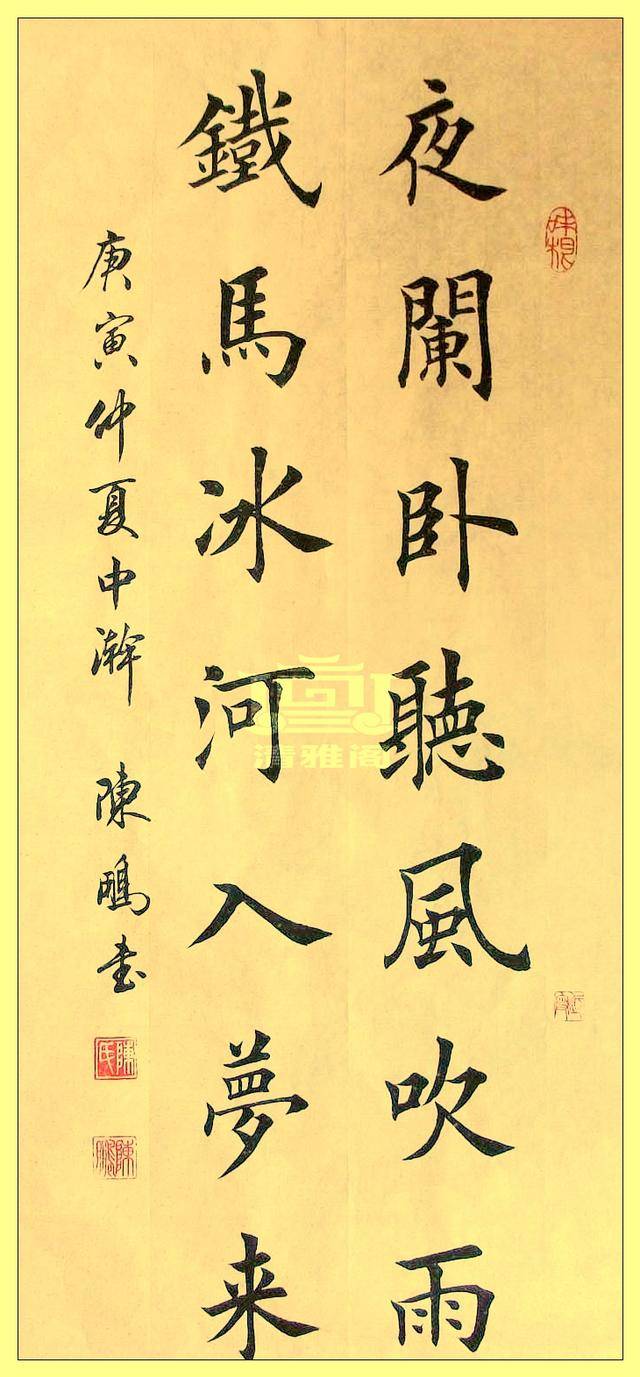 夜闌卧聽風吹雨
鐵馬冰河入夢来
庚寅仲夏中澣 陳鵬書
陳氏
清雅阁